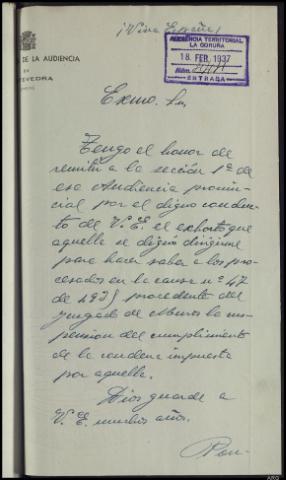 ¡Viva España!
DE LA AUDIENCIA
EN
TEVEDRA
AUDIENCIA TERRITORIAL
LA CORUÑA
18 FEB. 1937
Núm.
ENTRADA
Excmo. Sr.
Tengo el honor de
remitir a la sección 1ª de
esa Audiencia provin-
cial por el digno conduc-
to de V. E. el exhorto que
aquella se dignó dirigirme
para hacer saber a los pro-
cesados en la causa nº 47
de 1935 procedente del
juzgado de Muros la sus-
pension del cumplimiento
de la condena impuesta
por aquella.
Dios guarde a
V. E. muchos años.
Pon-
ARG